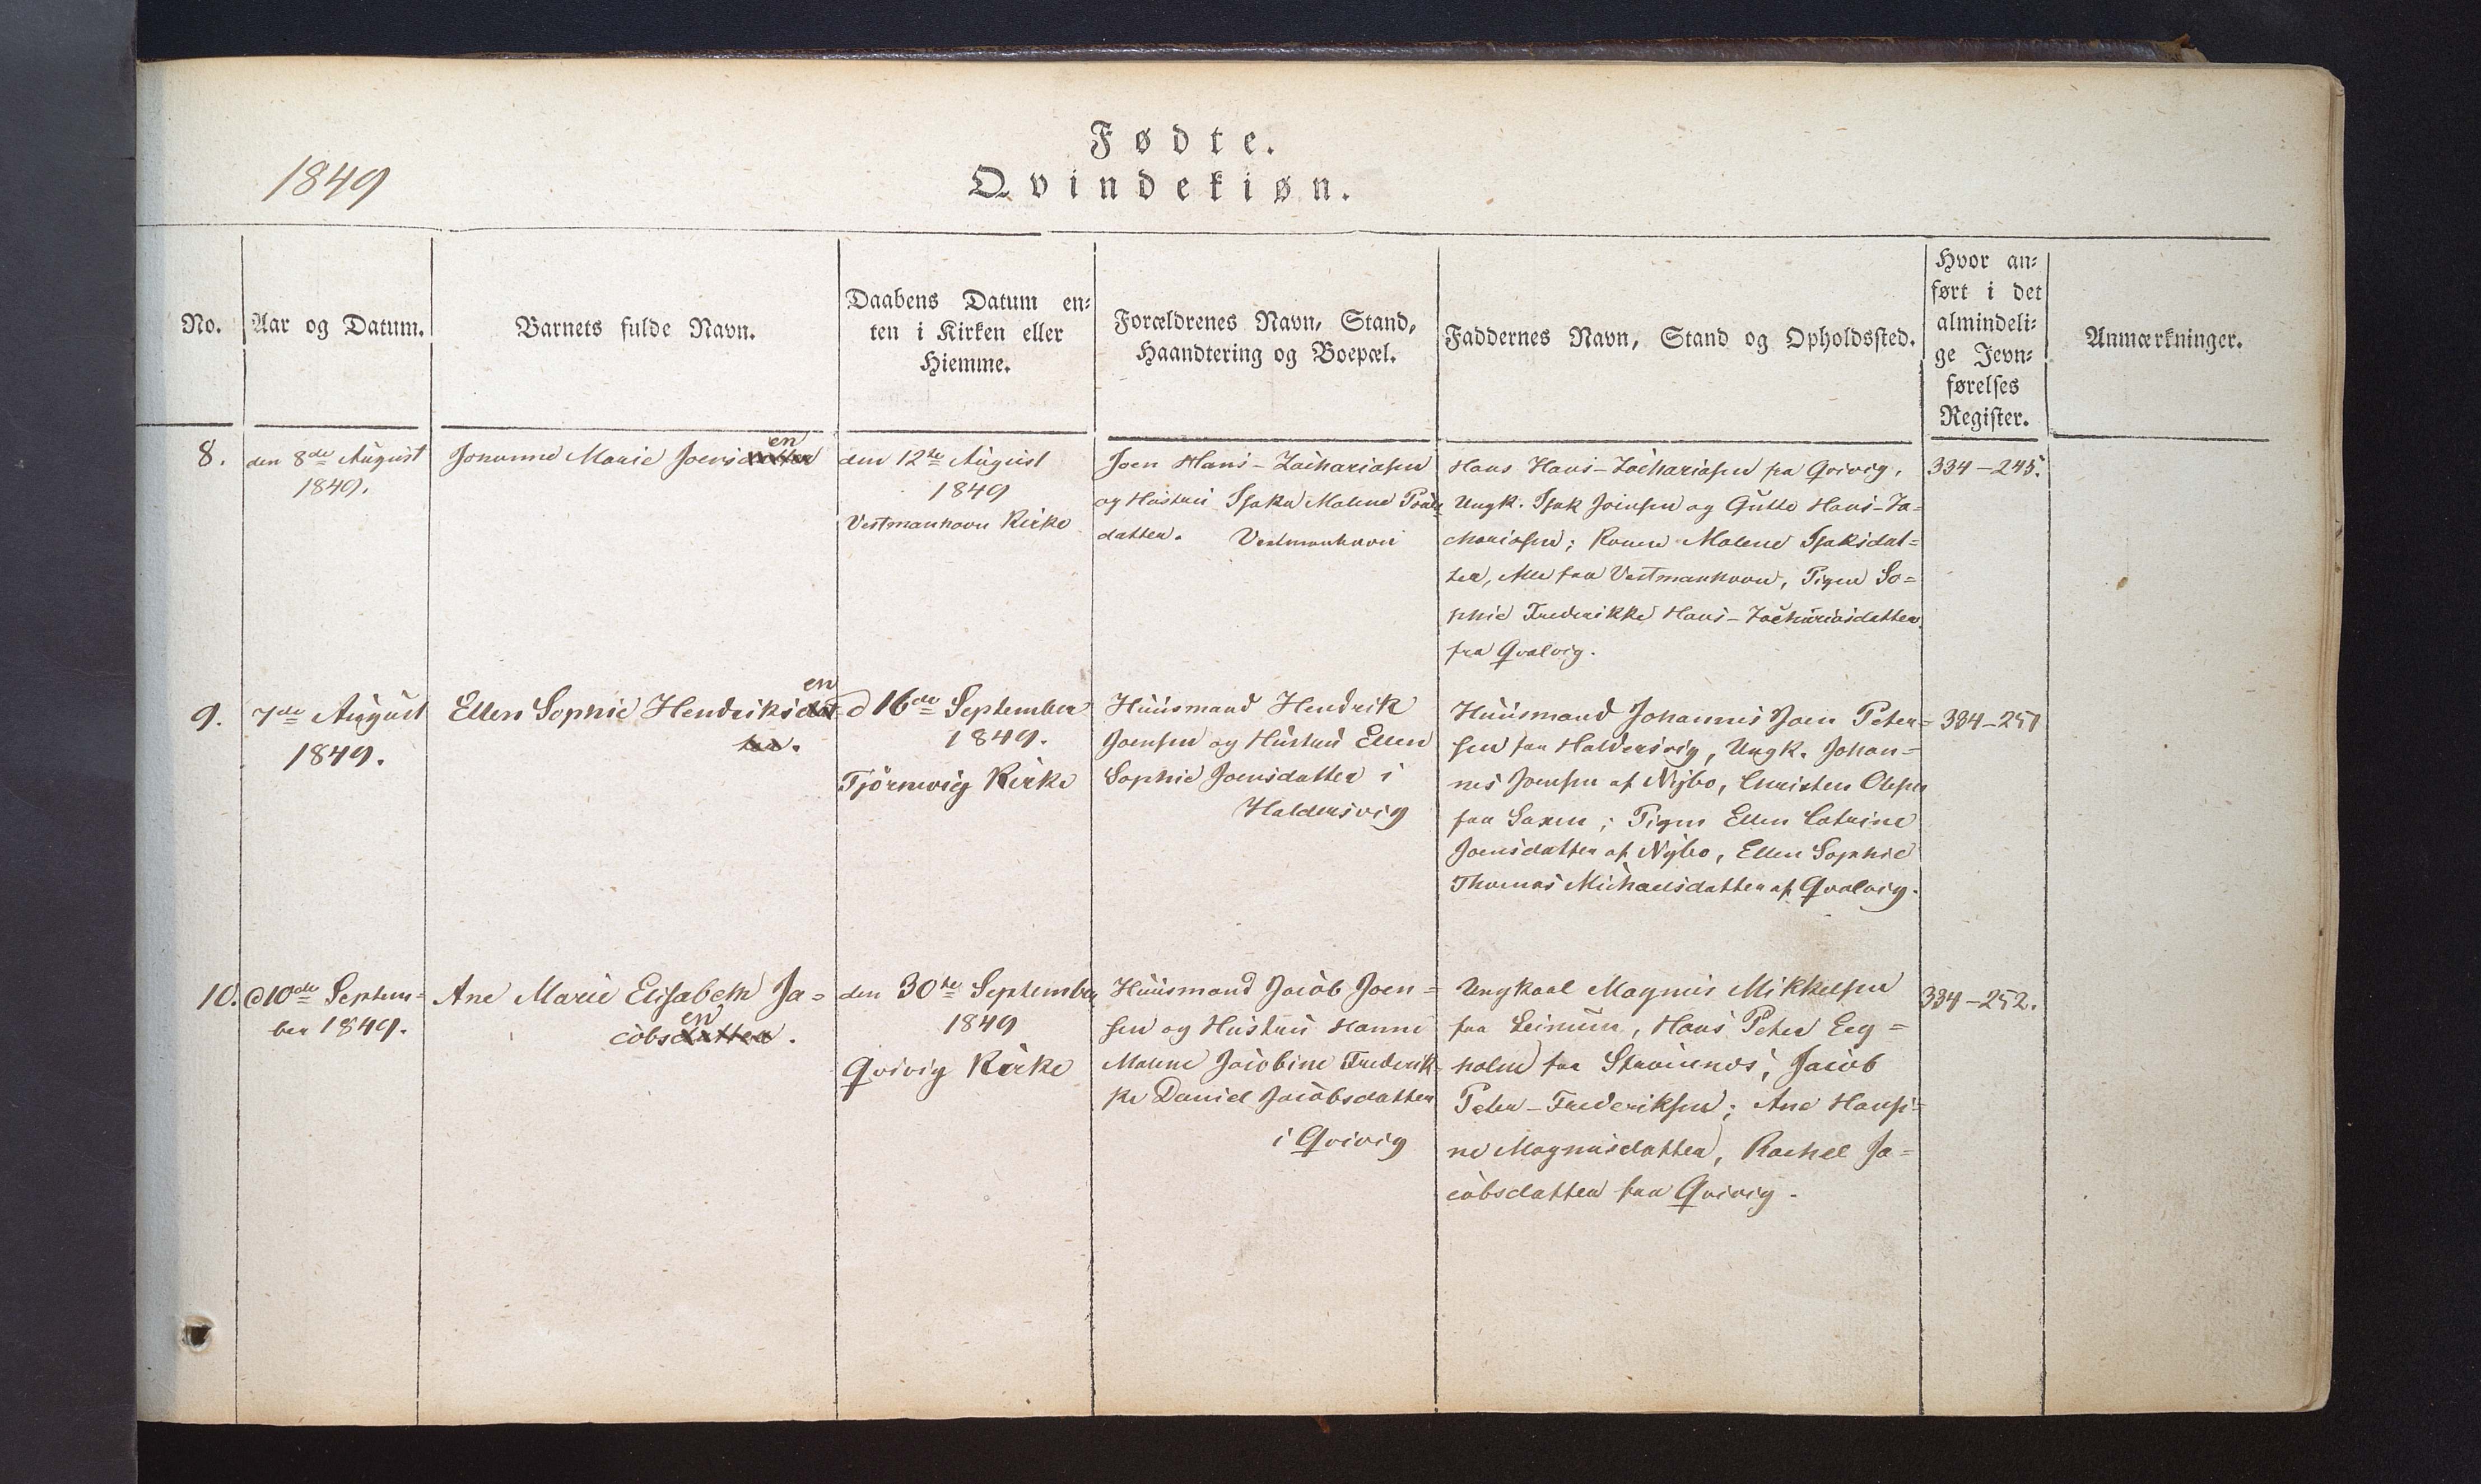 1849
Fødte.
Qvindekiøn.
No.
Aar og Datum.
Barnets fulde Navn.
Daabens Datum en-
ten i Kirken eller
Hiemme.
Forældrenes Navn, Stand,
Haandtering og Boepæl.
Faddernes Navn, Stand og Opholdssted.
Hvor an-
ført i det
almindeli-
ge Jevn-
førelses
Register.
Anmærkninger.
8.
den 8de August
1849.
en
Johanne Marie Joensdatter
den 12te August
1849
Vestmanhavn Kirke
Joen Hans-Zachariasen
og Hustru Isaka Malene Pouls
datter. Vestmanhavn
Hans Hans-Zachariasen fra Qvivig,
Ungk. Isak Joensen og Gutte Hans-Za=
chariasen; Konen Malene Isaksdat=
ter, Alle fra Vestmanhavn, Pigen So=
phie Frederikke Hans-Zachariasdatter
fra Qvalvig.
334-245.
9.
7de August
1849.
en
Ellen Sophie Hendriksdat
ter.
d 16de September
1849.
Tjörnevig Kirke
Huusmand Hendrik
Joensen og Hustru Ellen
Sophie Joensdatter i
Haldersvig
Huusmand Johannis Joen Peter=
sen fra Haldersvig, Ungk. Johan=
nes Joensen af Nybo, Christen Olesen
fra Saxen; Pigen Ellen Catrine
Joensdatter af Nybo, Ellen Sophie
Thomas Michaelsdatter af Qvalvig.
334-251
10.
d 10de Septem=
ber 1849.
Ane Marie Elisabeth Ja=
en
cobsdatter.
den 30te September
1849
Qvivig Kirke
Huusmand Jacob Joen=
sen og Hustru Hanne
Malene Jacobine Frederik=
ke Daniel Jacobsdatter
i Qvivig
Ungkarl Magnus Mikkelsen
fra Leinum, Hans Peter Eeg=
holm fra Strømnæs, Jacob
Peter-Frederiksen; Ane Hansi=
ne Magnusdatter, Rachel Ja=
cobsdatter fra Qvivig.
334-252.